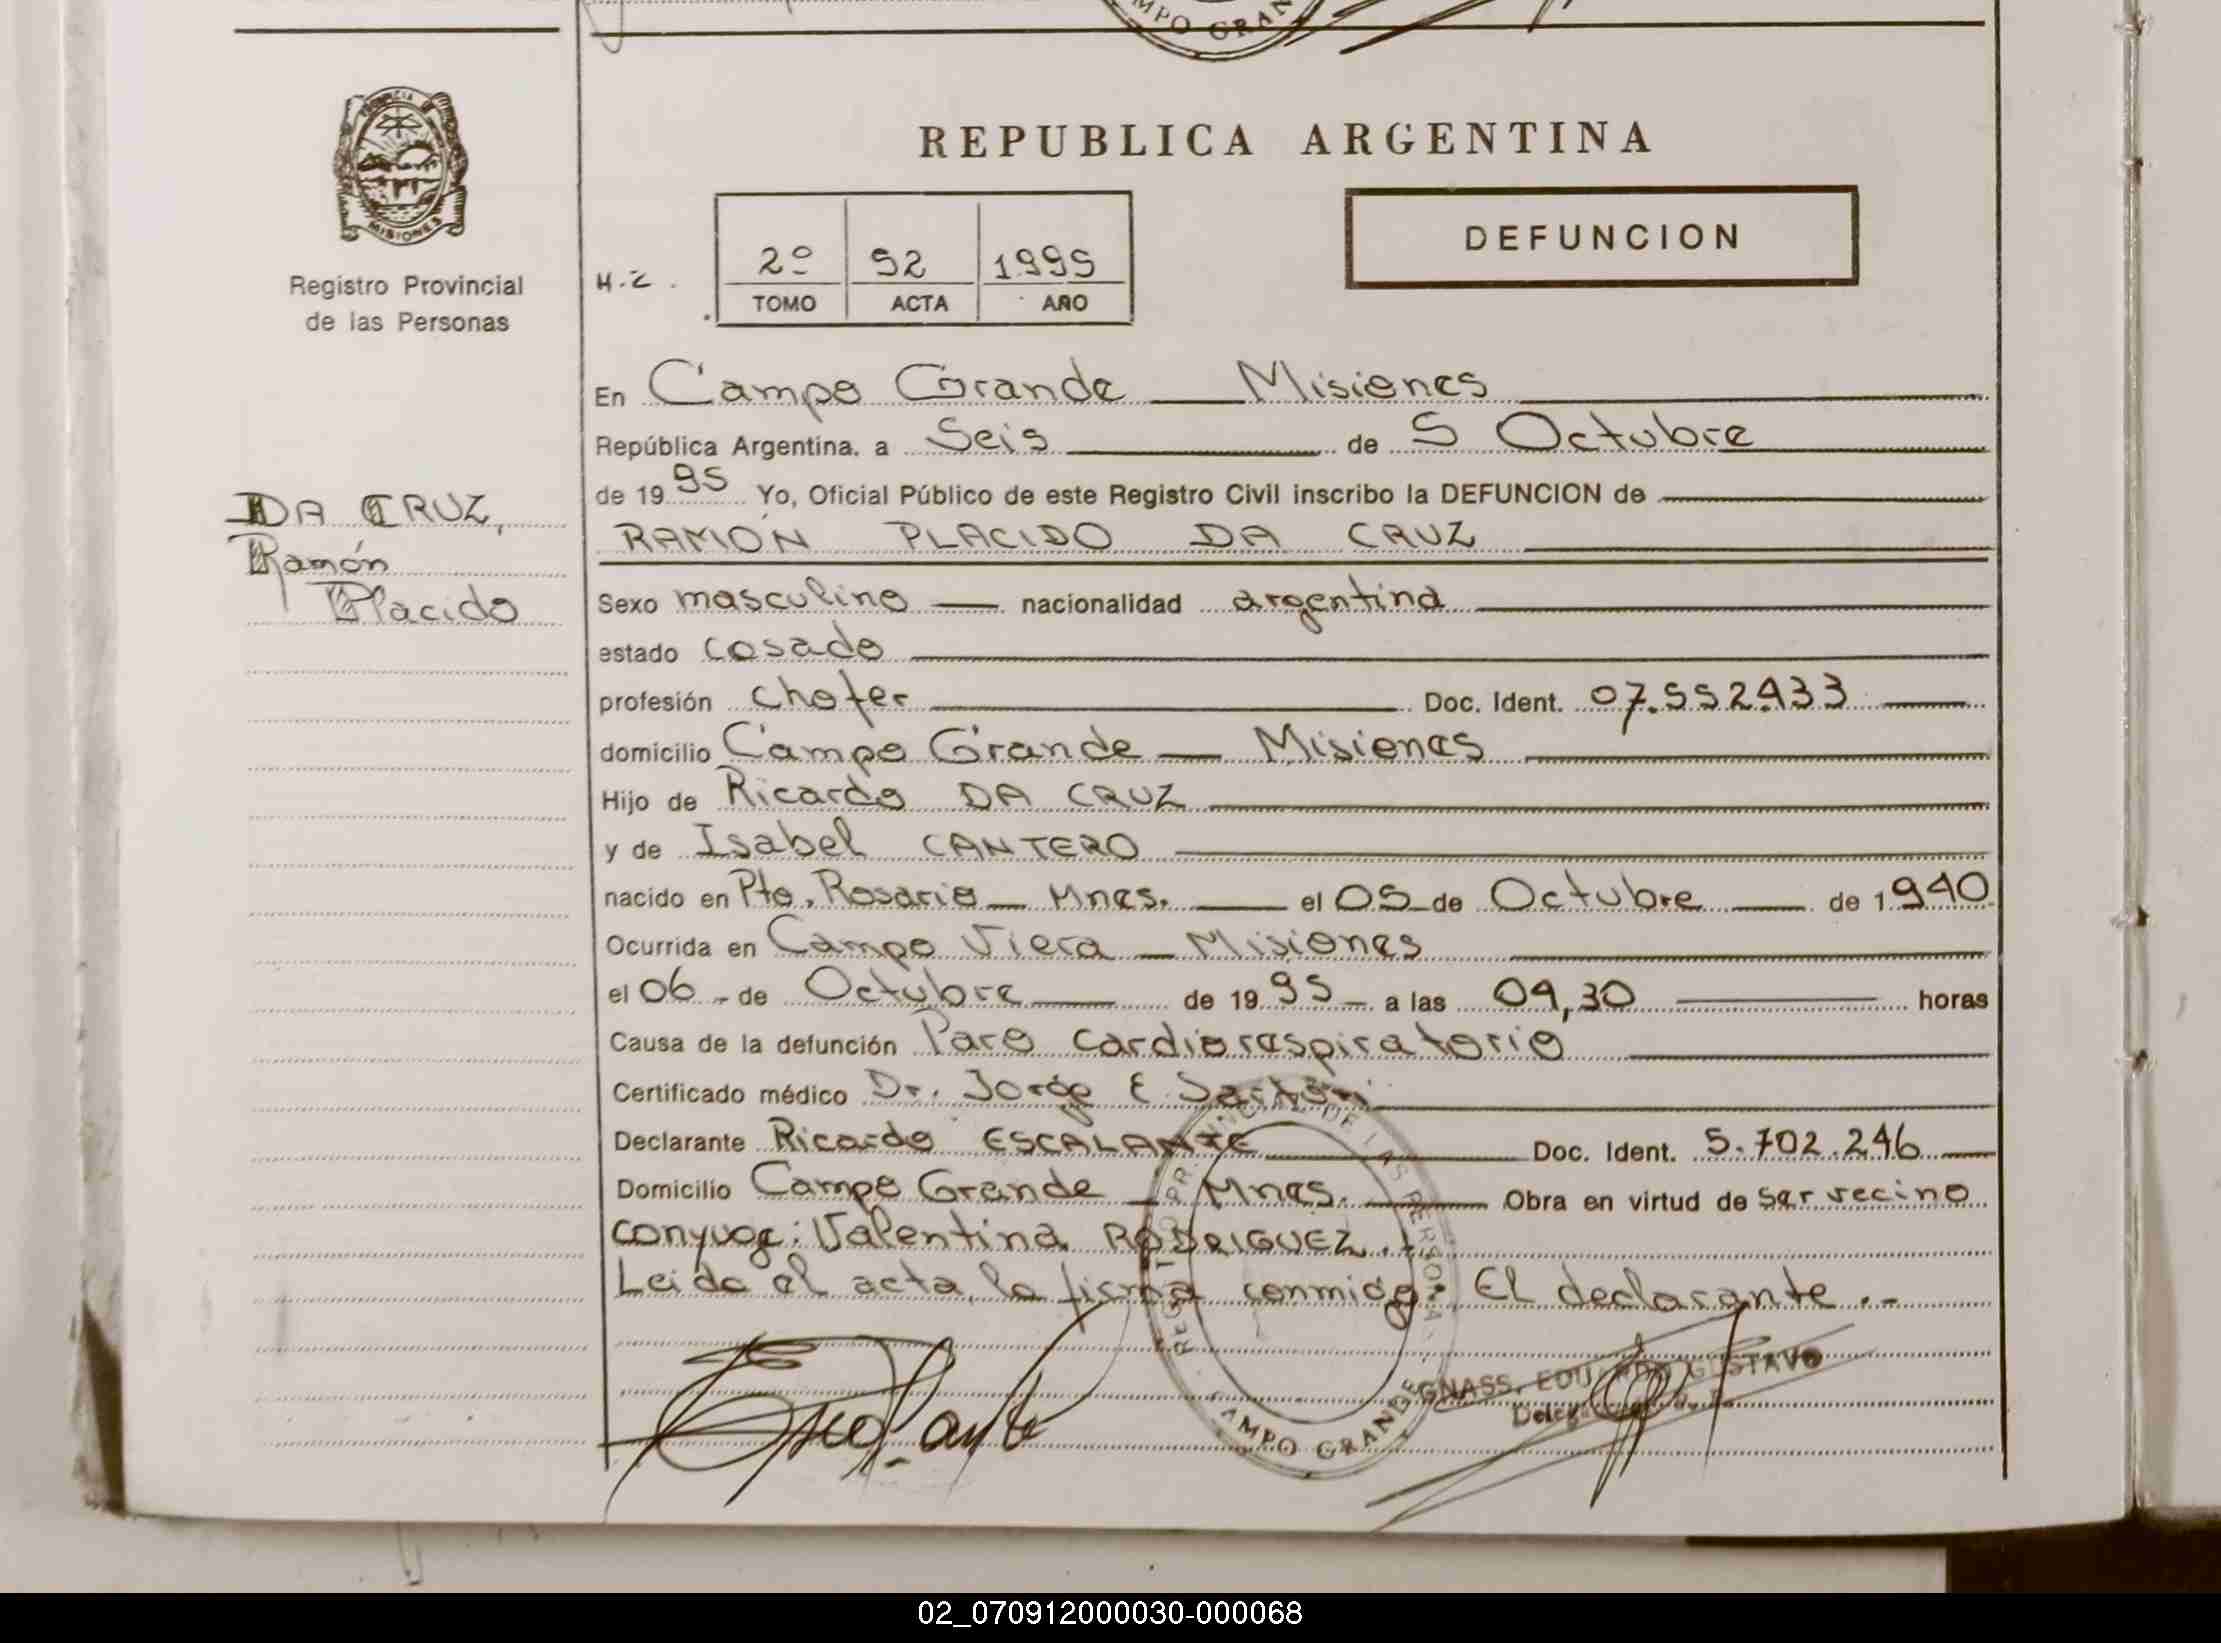 CAMPO GRAN
REPUBLICA ARGENTINA
PROVINCIA
MISIONES
Registro Provincial
de las Personas
H.C.
2º 52 1995
TOMO ACTA AÑO
DEFUNCION
En Campo Grande Misiones
República Argentina, a Seis de S Octubre
de 19 95 Yo, Oficial Público de este Registro Civil inscribo la DEFUNCION de
RAMON PLACIDO DA CRUZ
DA CRUZ,
Ramón
Placido
Sexo masculino nacionalidad argentina
estado casado
profesión chofer Doc. Ident. 07.552.433
domicilio Campo Grande Misiones
Hijo de Ricardo DA CRUZ
y de Isabel CANTERO
nacido en Pto. Rosario Mnes. el 05 de Octubre de 1 940
Ocurrida en Campo Viera Misiones
el 06 de Octubre de 19 95 a las 04,30 horas
Causa de la defunción Paro cardiorespiratorio
Certificado médico Dr. Jorge E Sartori
Declarante Ricardo ESCALANTE Doc. Ident. 5.702.246
Domicilio Campo Grande Mnes. Obra en virtud de ser vecino
conyuge: Valentina RODRIGUEZ.-
Leida el acta, la firma conmigo: El declarante.-
REGISTRO PROVINCIAL DE LAS PERSONAS
CAMPO GRANDE
Escalante
GNASS, EDUARDO GUSTAVO
02_070912000030-000068